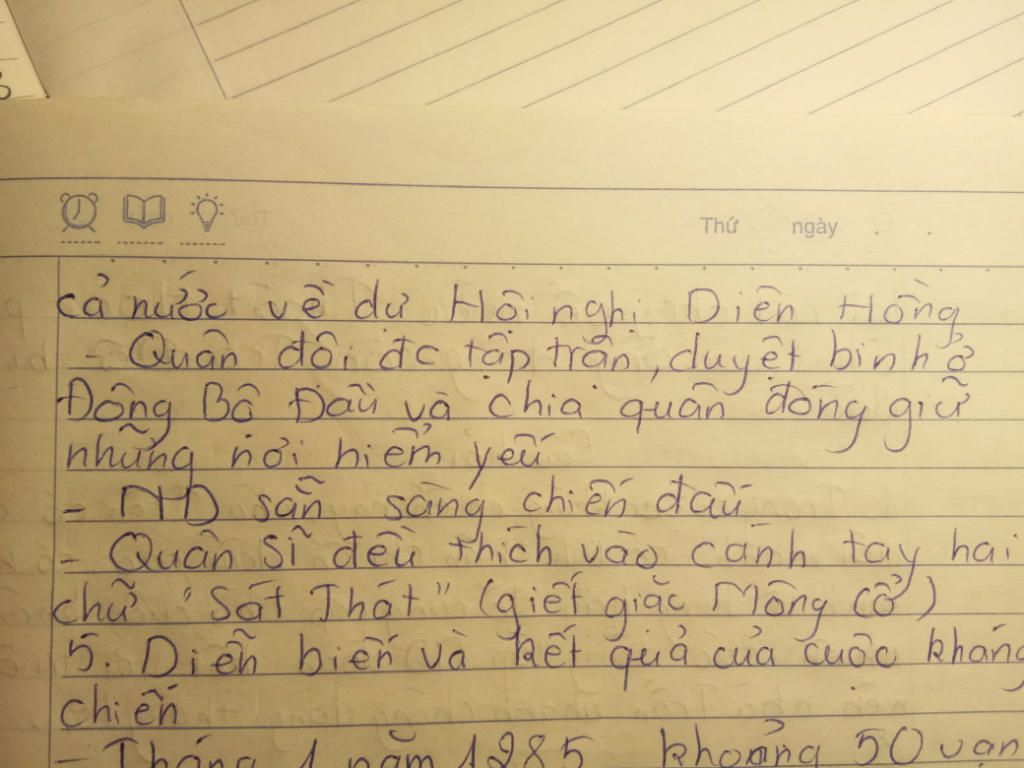 3
Thứ ngày . .
cả nước về dự Hội nghị Diên Hồng
- Quân đội đc tập trận, duyệt binh ở
Đông Bộ Đầu và chia quân đóng giữ
những nơi hiểm yếu
- ND sẵn sàng chiến đấu
- Quân Sĩ đều thích vào cánh tay hai
chữ "Sát Thát" (giết giặc Mông Cổ)
5. Diễn biến và kết quả của cuộc kháng
chiến
- Tháng 1 năm 1285 khoảng 50 vạn